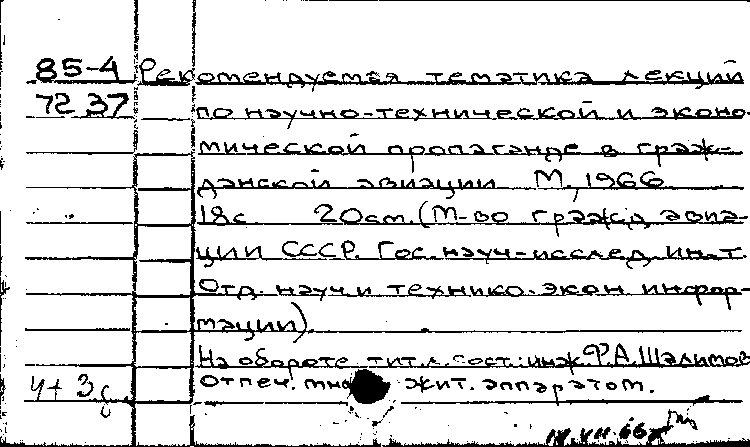 85-4 Рекомендуемая тематика лекций
7237 по научно-технической и эконо-
мической пропаганде в граж-
данской авиации М., 1966
18с 20см. (М-во гражд авиа-
ции СССР. Гос. науч-исслед. ин-т.
Отд. науч. и технико-экон информ-
мации).
На обороте тит. л. сост.: инж. Ф.А. Шалимов
Отпеч. жит. аппаратом.
4+3с